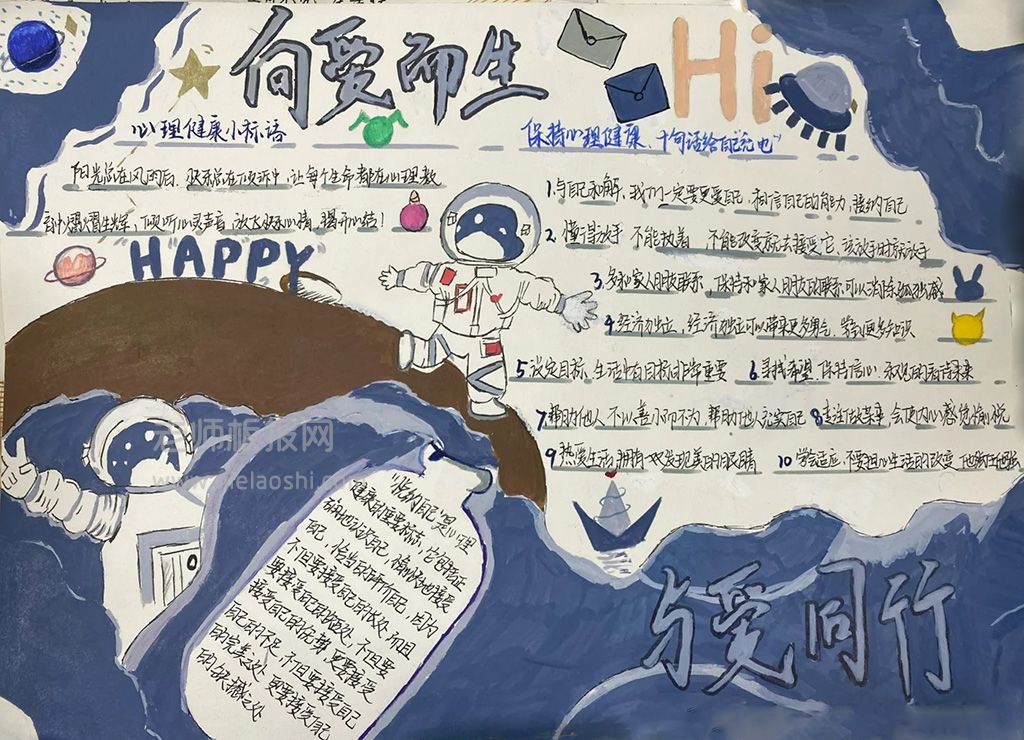 向爱而生
Hi
心理健康小标语
保持心理健康、十句话给自己充电
阳光总在风雨后，快乐总在倾诉中，让每个生命都在心理教
育中熠熠生辉，倾听心灵声音，放飞快乐心情，揭开心结！
HAPPY
1、与自己和解、我们一定要更爱自己，相信自己的能力，接纳自己
2、懂得放手 不能执着 不能改变就去接受它，该放手时就放手
3、多和家人朋友联系，保持和家人朋友的联系可以消除孤独感
4、经济独立，经济独立可以带来更多勇气，学到更多知识
5、设定目标、生活中有目标非常重要
6、寻找希望、保持信心、乐观的看待未来
7、帮助他人 不以善小而不为，帮助他人充实自己
8、走进大自然，会使内心感觉愉悦
9、热爱生活，拥有一双发现美的眼睛
10、学会适应、不要担心生活的改变
老师板报网
www.jielaoshi.c
"悦纳自己"是心理
健康的重要标志，它包括正
确地认识自己，愉快地接受
自己，恰当的评价自己，因为
不但要接受自己的长处，而且
要接受自己的短处，不但要
接受自己的优势，更要接受
自己的不足，不但要接受自己
的完美之处，更要接受自己
的缺憾之处
与爱同行